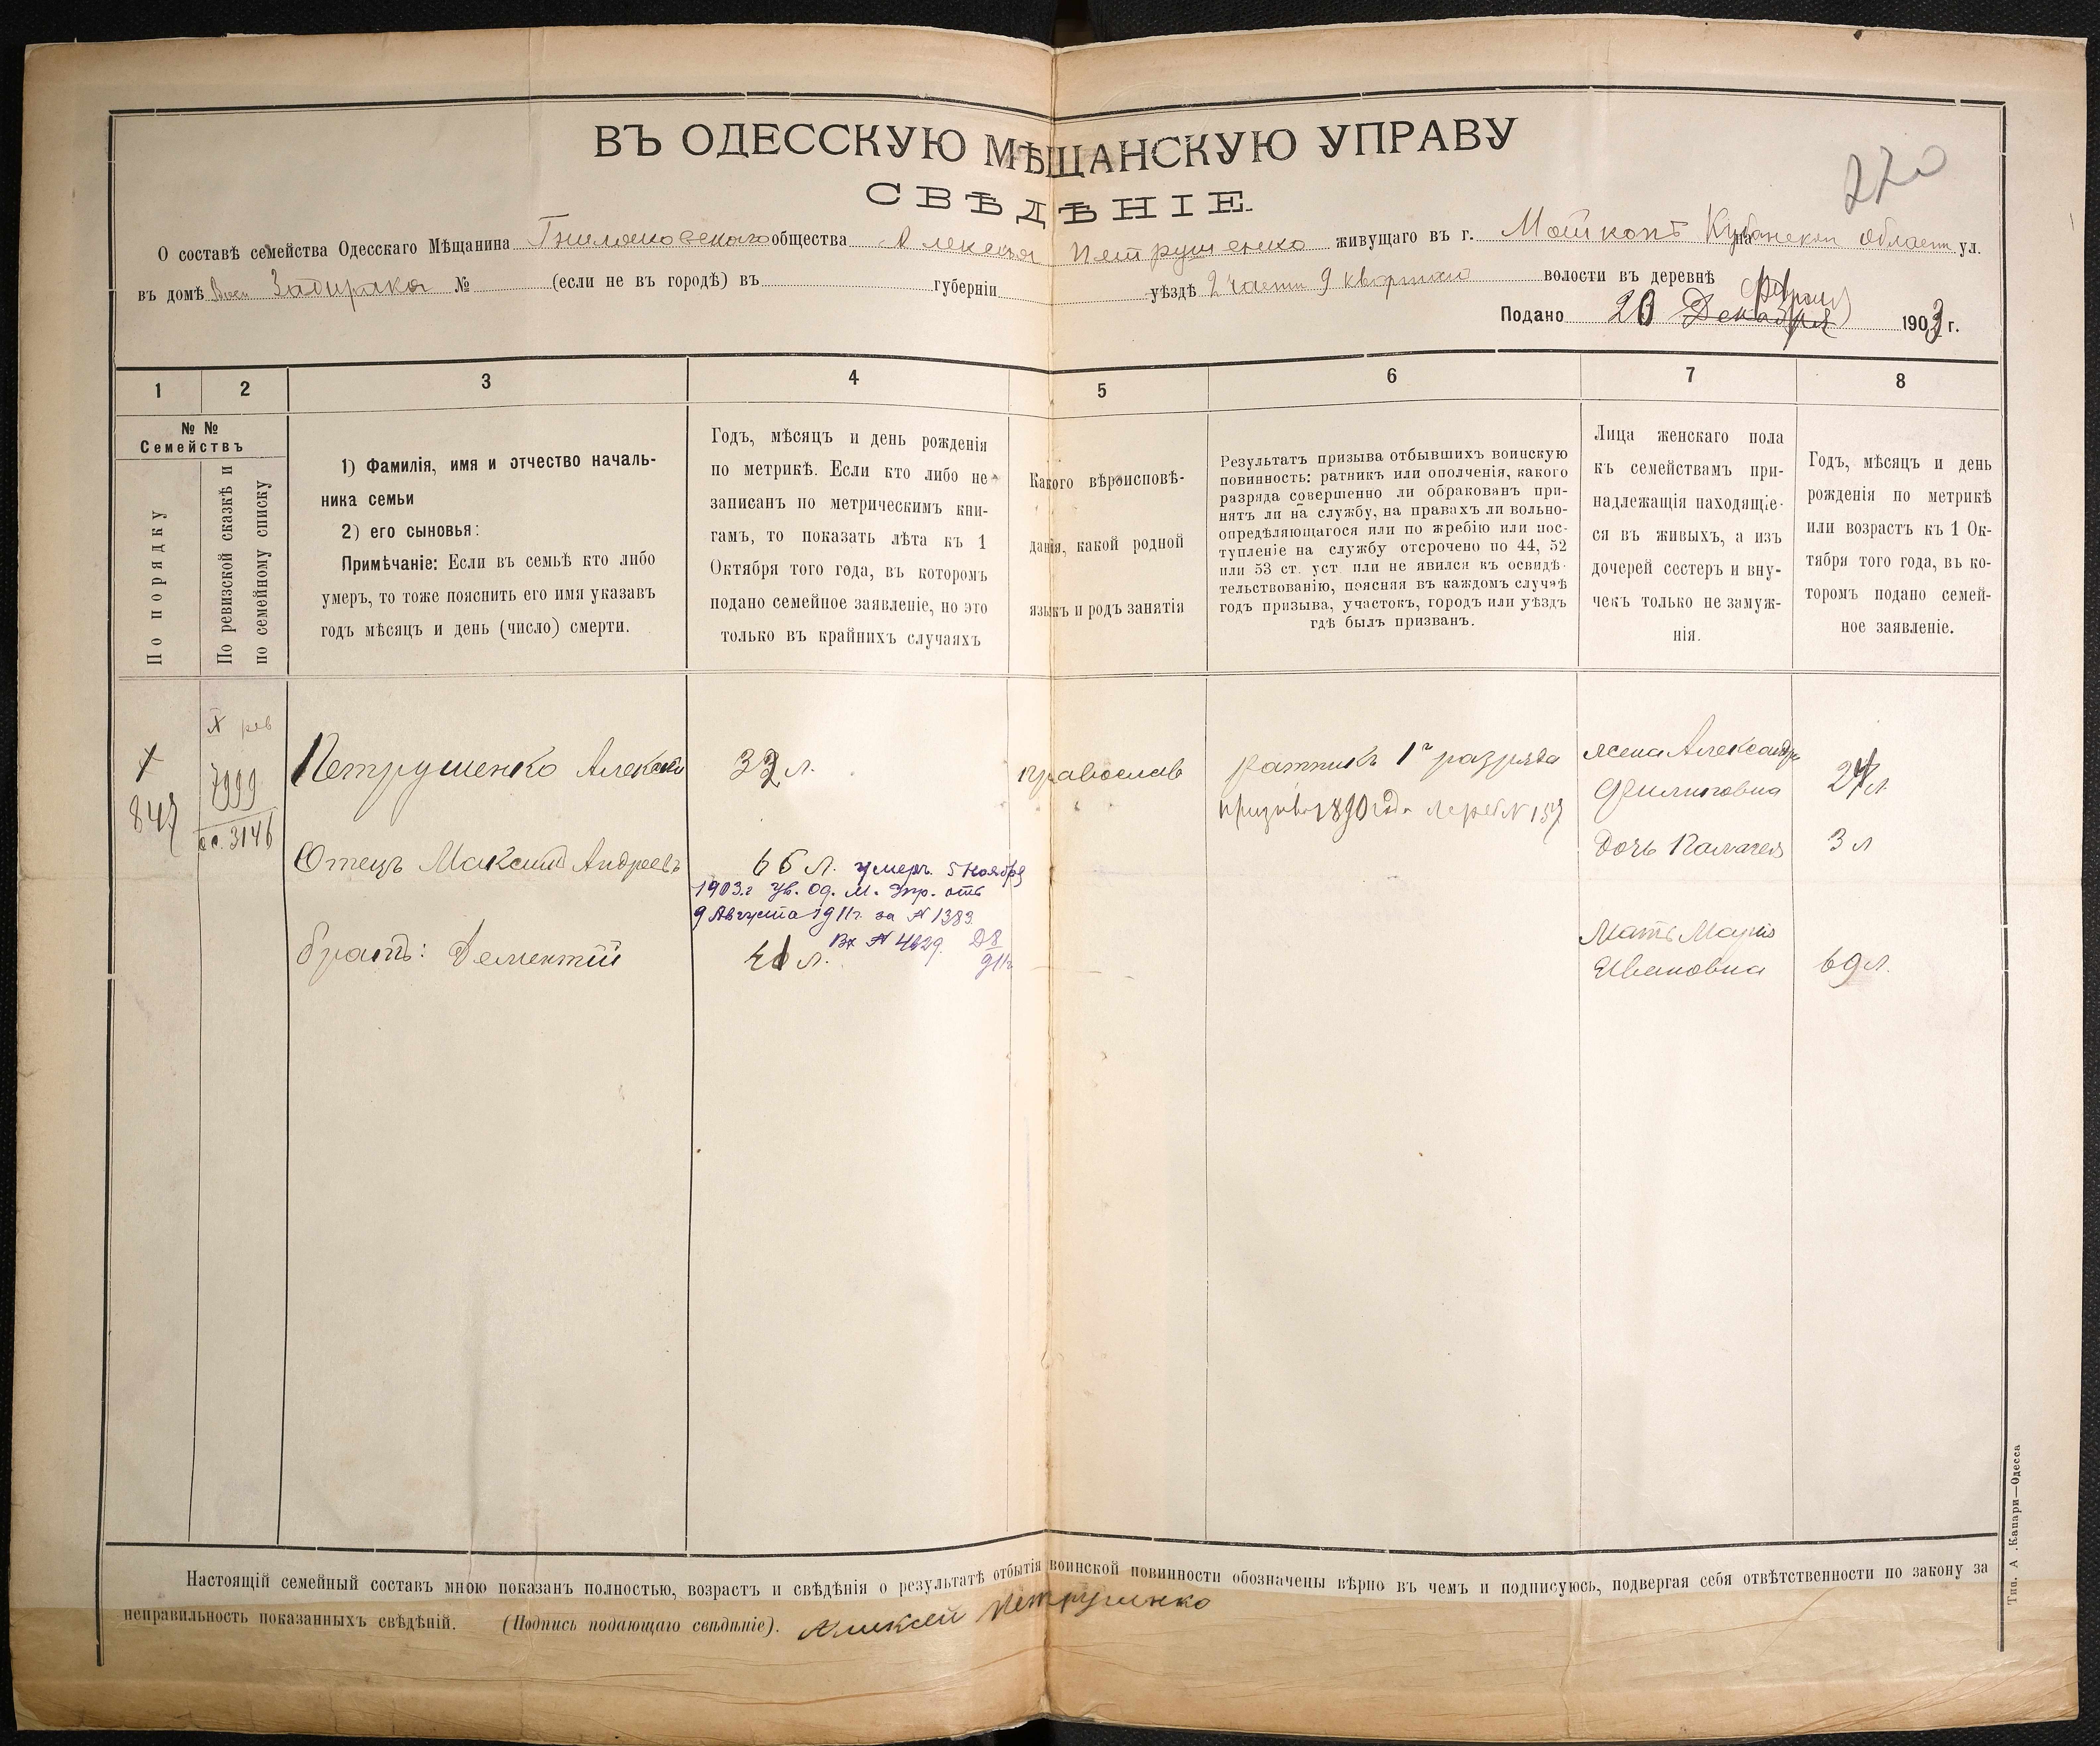 ВЪ ОДЕССКУЮ МѢЩАНСКУЮ УПРАВУ
220
СВѢДѢНІЕ.
О составѣ семейства Одесскаго Мѣщанина Гниляковскаго общества Алексея Петрушенко живущаго въ г. Майкопѣ Кубанской области на ул.
въ домѣ Задирака № (если не въ городѣ) въ губерніи уѣздѣ 2 части 9 квартала волости въ деревнѣ
Февраля
Подано 20 Декабря 1903 г.
1 2 3 4 5 6 7 8
№ №
Семействъ
По порядку
По ревизской сказкѣ и
по семейному списку
1) Фамилія, имя и отчество началь-
ника семьи
2) его сыновья:
Примѣчаніе: Если въ семьѣ кто либо
умеръ, то тоже пояснить его имя указавъ
годъ мѣсяцъ и день (число) смерти.
Годъ, мѣсяцъ и день рожденія
по метрикѣ. Если кто либо не
записанъ по метрическимъ кни-
гамъ, то показать лѣта къ 1
Октября того года, въ которомъ
подано семейное заявленіе, но это
только въ крайнихъ случаяхъ
Какого вѣроисповѣ-
данія, какой родной
языкъ и родъ занятія
Результатъ призыва отбывшихъ воинскую
повинность: ратникъ или ополченія, какого
разряда совершенно ли обракованъ при-
нятъ ли на службу, на правахъ ли вольно-
опредѣляющагося или по жребію или пос-
тупленіе на службу отсрочено по 44, 52
или 53 ст. уст. или не явился къ освидѣ-
тельствованію, поясняя въ каждомъ случаѣ
годъ призыва, участокъ, городъ или уѣздъ
гдѣ былъ призванъ.
Лица женскаго пола
къ семействамъ при-
надлежащія находящіе-
ся въ живыхъ, а изъ
дочерей сестеръ и вну-
чекъ только не замуж-
нія.
Годъ, мѣсяцъ и день
рожденія по метрикѣ
или возрастъ къ 1 Ок-
тября того года, въ ко-
торомъ подано семей-
ное заявленіе.
X рев
847
7999
3146
Петрушенко Алексей
32 л.
православ
ратникъ 1го разряда
призыва 1890 года жереб № 157
жена Александра
Филиповна
24 л
Дочь Палагея
3 л
Отецъ Максимъ Андреевъ
66 л. умеръ 5 Ноября
1903 г Ув. Од. М. Упр. отъ
9 Августа 1911 г. за № 1383
Вх № 4629 28/8
911 г
братъ: Дементій
41 л.
Мать Марія
Ивановна
69 л.
Настоящій семейный составъ мною показанъ полностью, возрастъ и свѣдѣнія о результатѣ отбытія воинской повинности обозначены вѣрно въ чемъ и подписуюсь, подвергая себя отвѣтственности по закону за
неправильность показанныхъ свѣдѣній. (Подпись подающаго свѣдѣніе). Алексей Петрушенко
Тип. А. Капари—Одесса